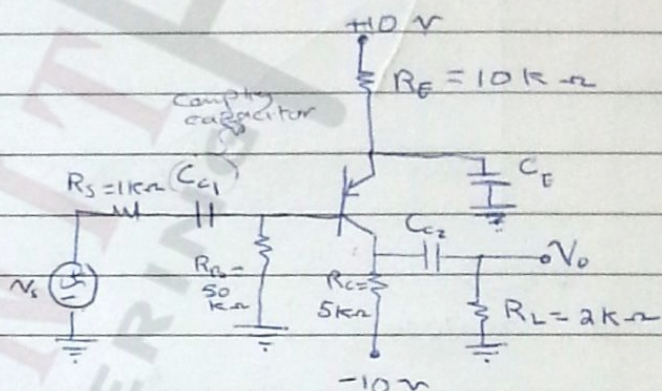 +10 V
RE = 10K Ω
Couplig capacitor
Rs = 1KΩ
Cc1
CE
Cc2
Vo
vs
RB = 50 KΩ
Rc = 5KΩ
RL = 2KΩ
-10 V
ERING